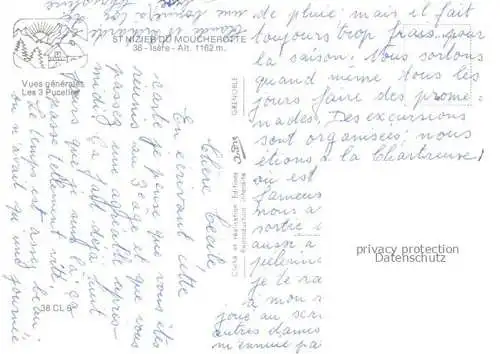 ST NIZIER DU MOUCHEROTTE
38 - Isère - Alt. 1162 m.
Vues générales
Les 3 Pucelles
38 CL 6
GRENOBLE
Clichés et réalisation Editions
Reproduction interdite
Chère Cécile
En écrivant cette
carte je pense que vous êtes
réunis au 3e âge et que vous
passez une agréable après-
midi. Ça fait déjà huit
jours que je suis là ça
passe tellement vite.
Le temps est assez beau
on n'avait qu'une journée
de pluie mais il fait
toujours trop frais pour
la saison. Nous sortons
quand même tous les
jours faire des prome-
nades. Des excursions
sont organisées: nous
étions à la Chartreuse
où est
fameus
nous a
sortie
aussi à
pélerin
je le ra
à mon
joue au scr
autres dames
m'ennuie pa
privacy protection
Datenschutz